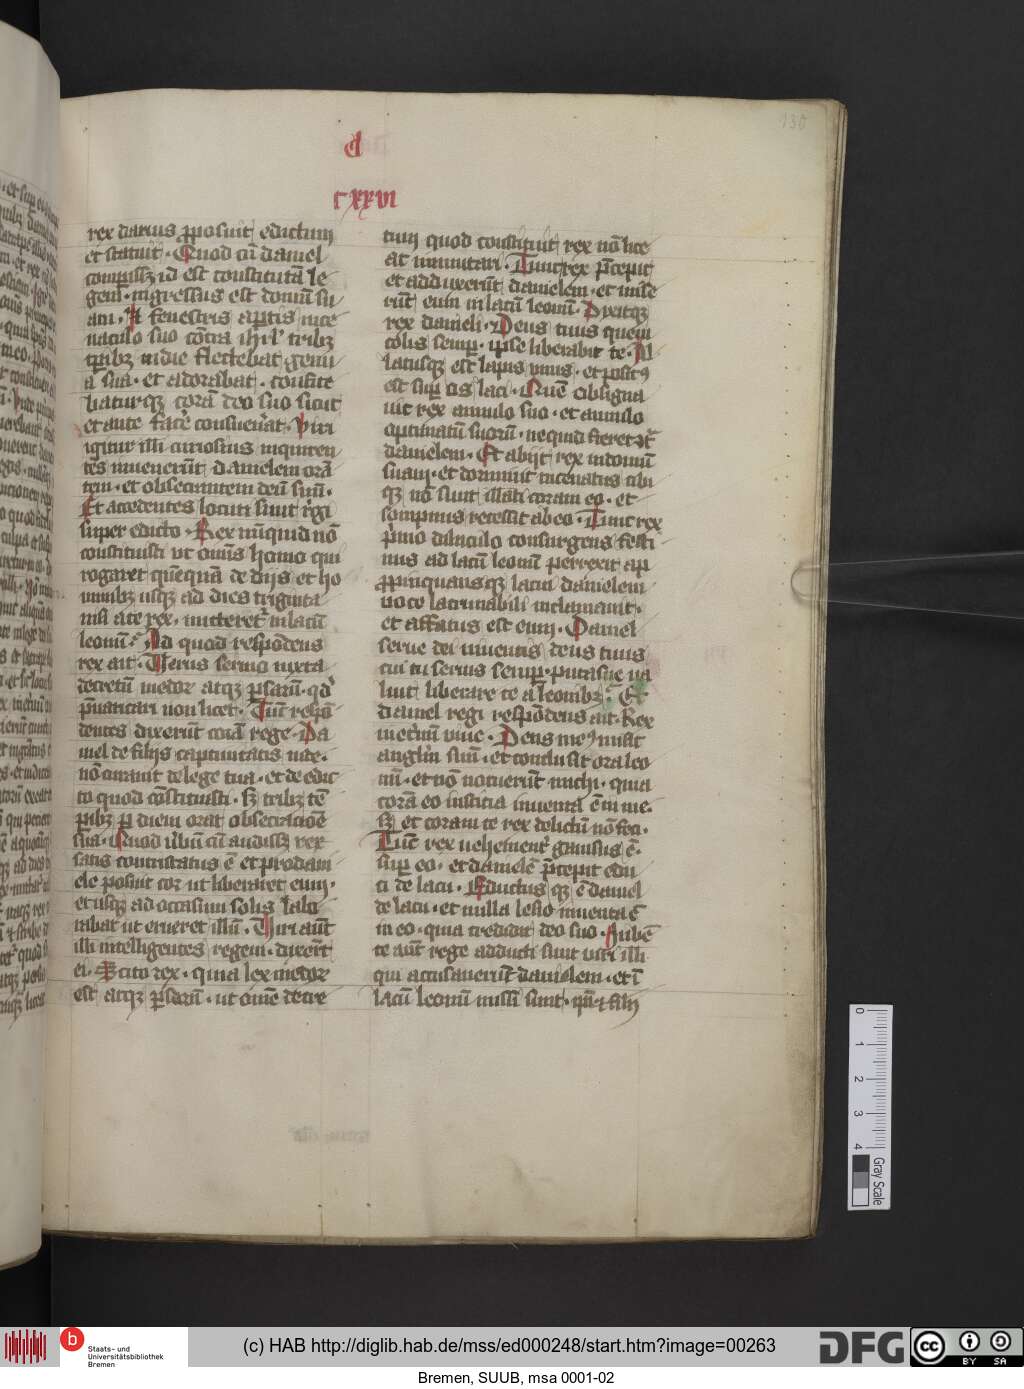 130
d
cxxvi
rex darius ꝓposuit edictum
et statuit · Quod cū daniel
comperissꝫ id est constitutā le
gem · ingressus est domū su
am · Et fenestris aꝑtis in ce
naculo suo cōtra ihrl'm tribꝫ
tꝑibꝫ in die flectebat genu
a sua · et adorabat · confite
baturqꝫ corā deo suo sicut
et ante facē consueuāt · Viri
igitur illi curiosius inquiren
tes inuenerūt danielem orā
tem · et obsecrantem deū suū ·
Et accedentes locuti sunt rgi
super edicto · Rex nūquid nō
constituisti vt omīs homo qui
rogaret quēquā de dijs et ho
minibꝫ usqꝫ ad dies triginta
nisi a te rex · mitteret' in lacū
leonū · Ad quod respōdens
rex ait · Verus sermo iuxta
decretū medor atqꝫ ꝑsarū · qd'
p̄uaricari non licet · Tūc respō
dentes dixerūt corā rege · Da
niel de filijs captiuitatis iude ·
nō curauit de lege tua · et de edic
to quod cōstituisti · sꝫ tribꝫ tē
ꝑibꝫ ꝑ diem orat obsecratiōe
sua · Quod ūbū cū audissꝫ rex
satis contristatus ē et pro dani
ele posuit cor ut liberaret eum ·
et usqꝫ ad occasum solis labo
rabat ut erueret illū · Viri aūt
illi intelligentes regem · dixert
ei · Scito rex · quia lex medor
est atqꝫ ꝑsarū · ut omē decre
tum quod constituit rex nō lice
at inmutari · Tunc rex p̄cepit
et adduxerūt danielem · et mise
rūt eum in lacū leonū · Dixitqꝫ
rex danieli · Deus tuus quem
colis semꝑ · ipse liberabit te · Al
latusqꝫ est lapis vnus · et posit9
est suꝑ os laci · Quē obsigna
uit rex annulo suo · et annulo
optimatū suorū · ne quid fieret ꝯt
danielem · Et abijt rex in domū
suam · et dormiuit incenatus cibi
qꝫ nō sunt illati coram eo · et
sompnus recessit ab eo · Tunc rex
p'mo diluculo consurgens festi
nus ad lacū leonū perrexit · ap
ꝓpinquansqꝫ lacui danielem
uoce lacrimabili inclamauit ·
et affatus est eum · Daniel
serue dei uiuentis deus tuus
cui tu seruis semꝑ · putasne ua
luit liberare te a leonibꝫ · Et
daniel regi respōdens ait · Rex
in et'nū viue · Deus me9 misit
anglm suū · et conclusit ora leo
nū · et nō nocuerūt michi · quia
corā eo iusticia inuenta ē in me ·
sꝫ et coram te rex delictū nō feci ·
Tūc rex uehement' gauisus ē ·
suꝑ eo · et danielē p̄cepit edu
ci de lacu · Eductus qꝫ ē daniel
de lacu · et nulla lesio inuenta ē
in eo · quia credidit deo suo · Iubē
te aūt rege adducti sunt viri illi
qui accusauerūt danielem · et ī
lacū leonū missi sunt · ip̄i et filij
0 1 2 3 4
Gray Scale
b
Staats- und
Universitätsbibliothek
Bremen
(c) HAB http://diglib.hab.de/mss/ed000248/start.htm?image=00263
DFG
cc
BY SA
Bremen, SUUB, msa 0001-02